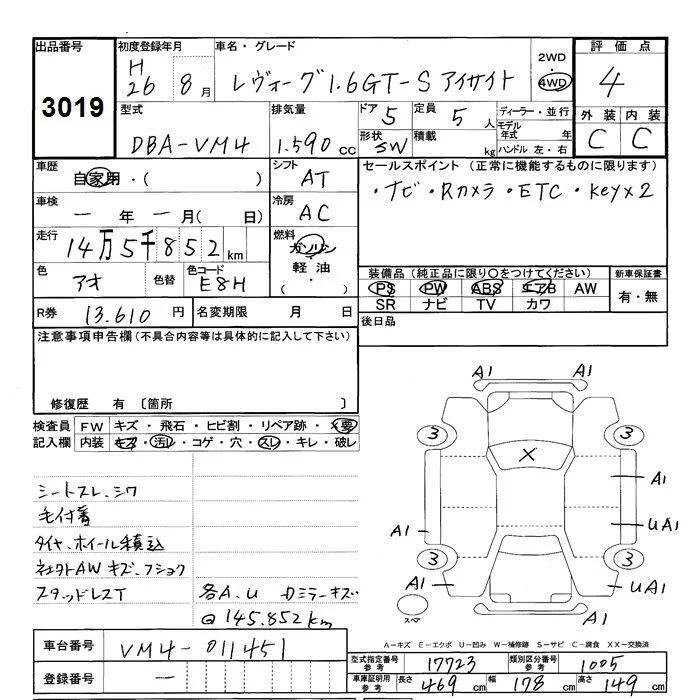 出品番号
3019
初度登録年月
H 26 8月
車名・グレード
レヴォーグ1.6GT-S アイサイト
2WD
4WD
評価点
4
外装 内装
C C
型式
DBA-VM4
排気量
1.590 cc
ドア 5
定員 5人
形状 SW
積載 kg
ディーラー・並行
モデル年式 年
ハンドル 左・右
車歴
自家用・( )
シフト
AT
セールスポイント (正常に機能するものに限ります)
・ナビ・Rカメラ・ETC・keyx2
車検
一年一月( 日)
冷房
AC
走行
14万5千852km
燃料
ガソリン
軽油
・( )
色
アオ
色替
色コード
E8H
装備品 (純正品に限り○をつけてください)
PS PW ABS エアB AW
SR ナビ TV カワ
新車保証書
有・無
R券 13.610 円
名変期限 月 日
後日品
注意事項申告欄 (不具合内容等は具体的に記入して下さい)
修復歴 有 〔箇所 〕
検査員記入欄
FW キズ・飛石・ヒビ割・リペア跡・X要
内装 キズ・汚レ・コゲ・穴・スレ・キレ・破レ
シートスレ.シワ
毛付着
タイヤ.ホイール積込
社外AWキズ.フショク
スタッドレスT
各A.U カミラーキズ
@145.852km
A1 A1
3 3
X
A1
A1 UA1
3 3
A1 UA1
スペア
A-キズ E-エクボ U-凹み W-補修跡 S-サビ C-腐食 XX-交換済
車台番号 VM4-011451
登録番号 一
型式指定番号 参考 17723
類別区分番号 参考 1005
車庫証明用 参考 長さ 469 cm 幅 178 cm 高さ 149 cm